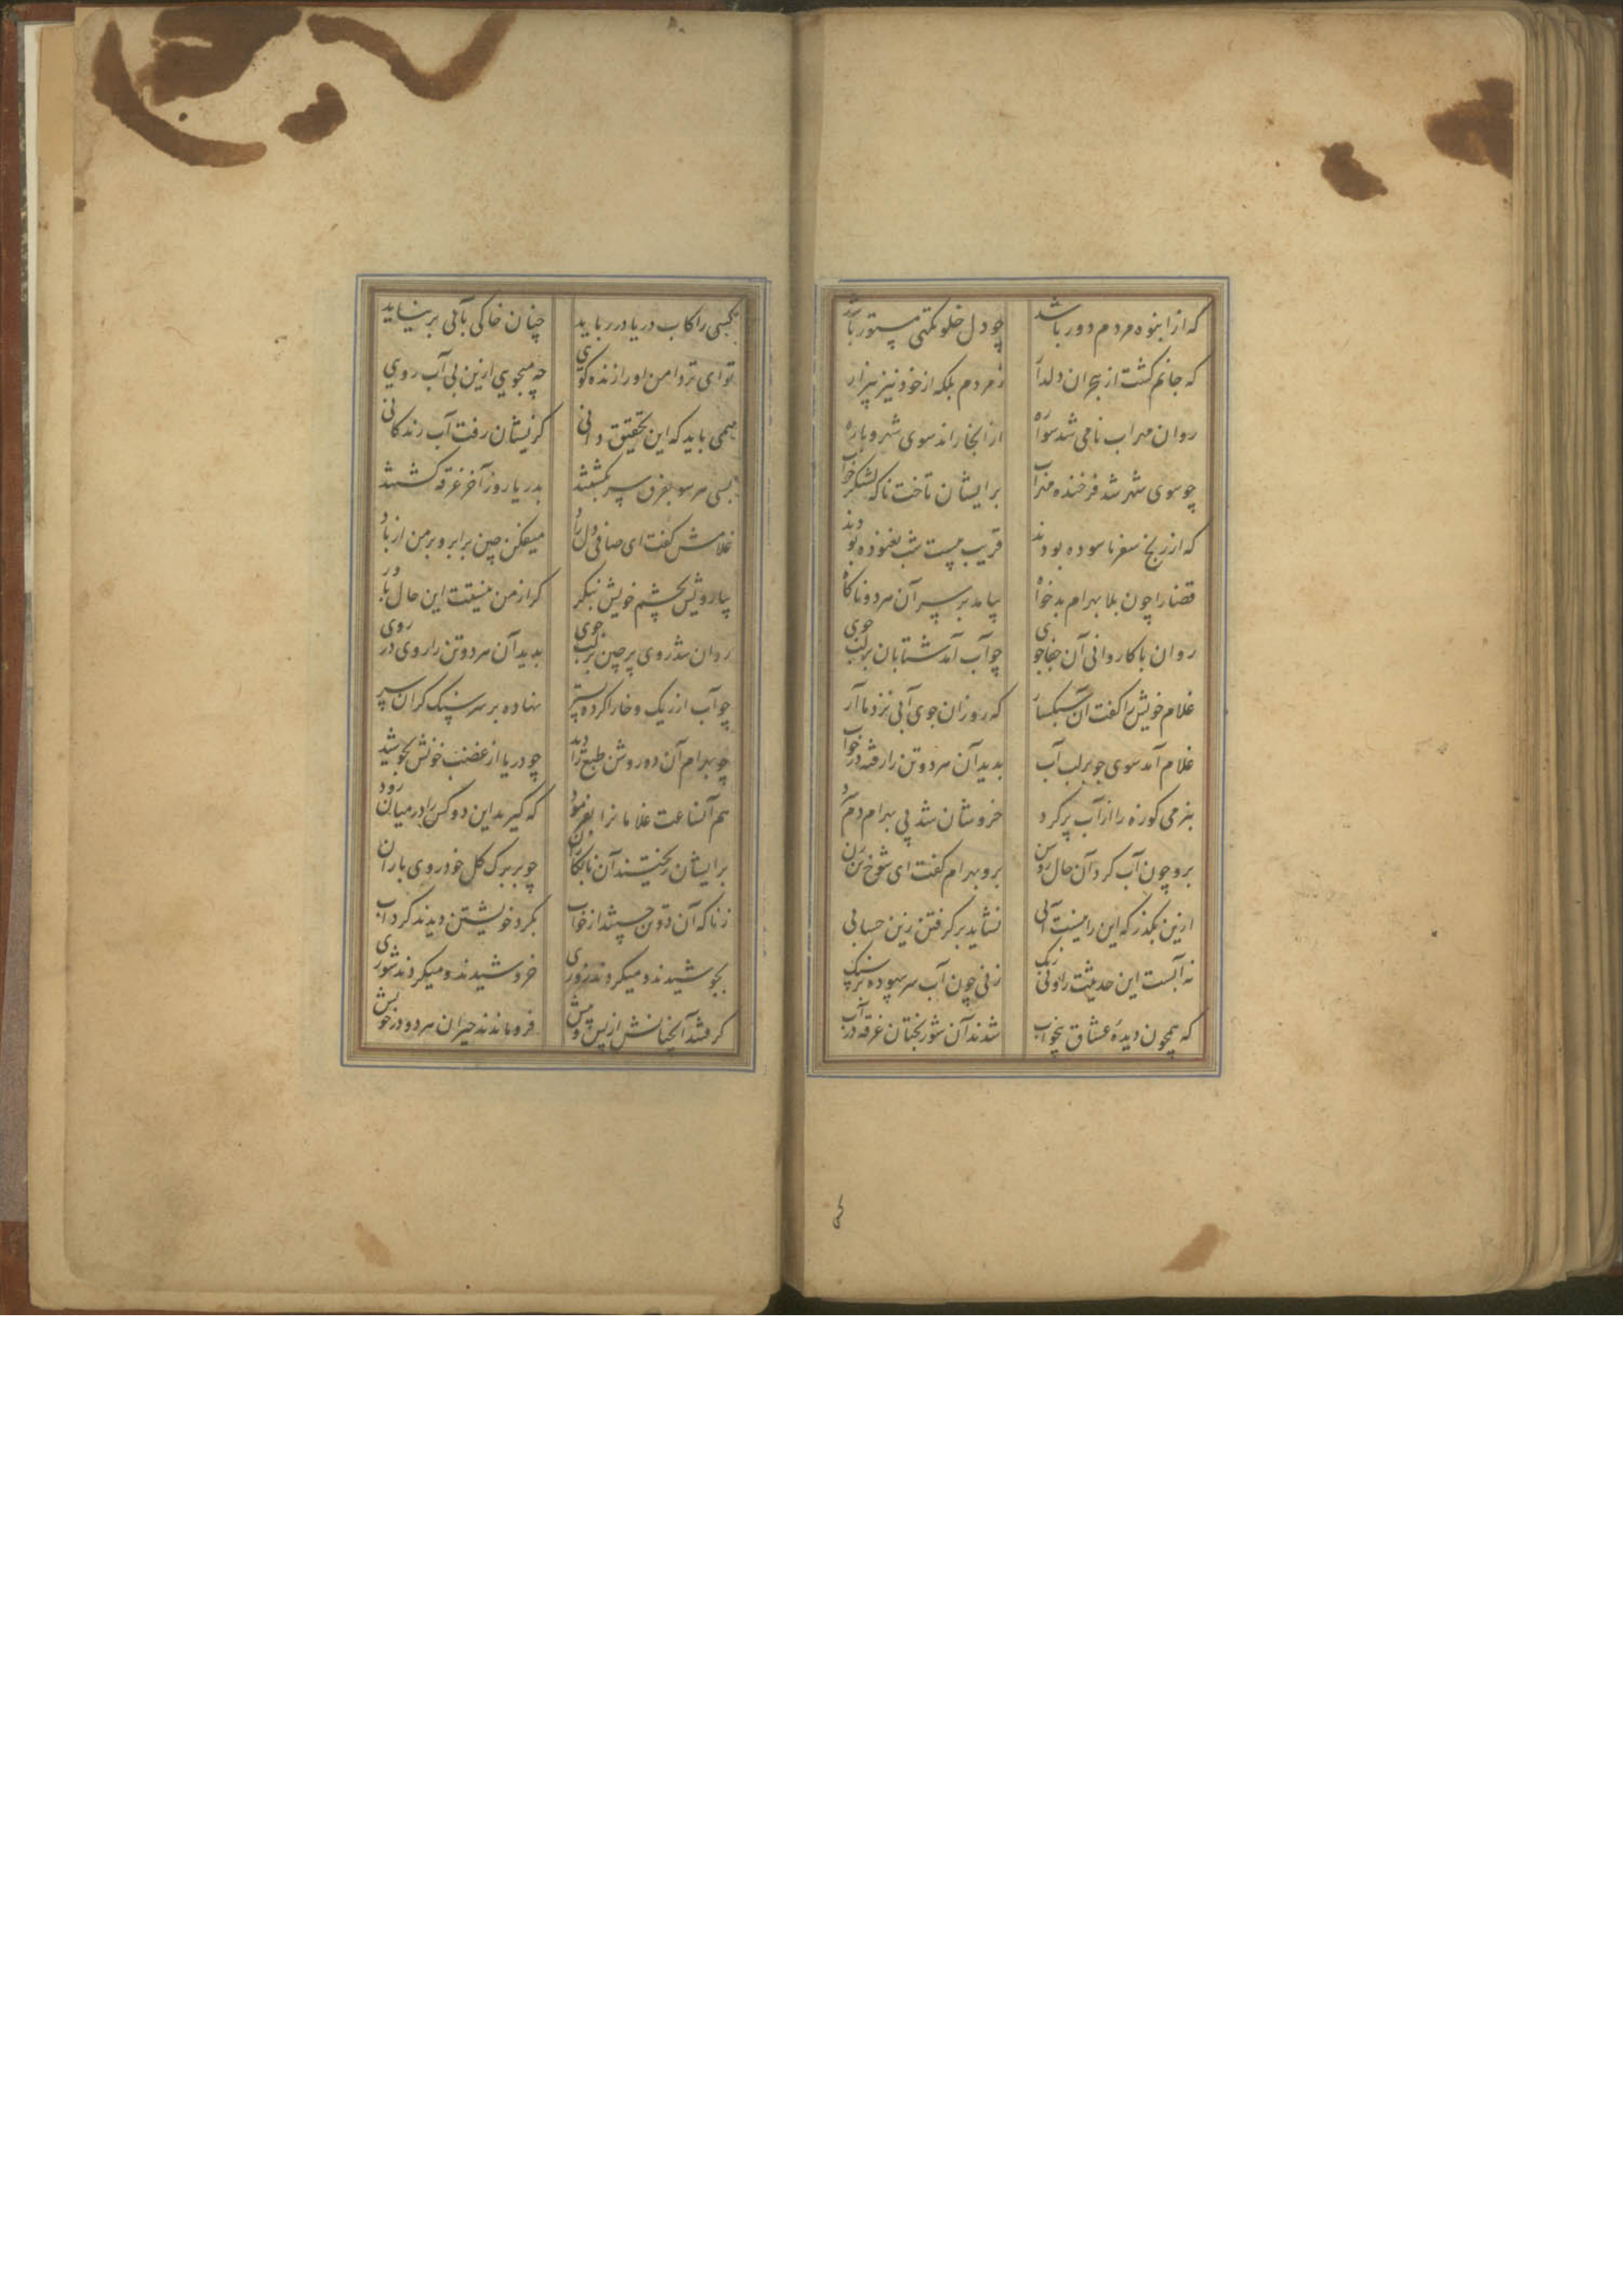 که از انبوه مردم دور باشد چو دل خلوتگهی مستور باشد
که جانم گشت از هجران دلدار ز مردم بلکه از خود نیز بیزار
روان مهراب نامی شد سواره از انجا راند سوی شهر و باره
چو سوی شهر شد فرخنده مهراب برایشان تاخت ناکه لشکر خواب
که از رنج سفر ناسوده بودند قریب بیست شب نغنوده بودند
قضا را چون بلا بهرام بدخواه بیامد بر سر آن هر دو ناکاه
روان با کاروانی آن جفاجوی چو آب آمد شتابان بر لب جوی
غلام خویش را کفت آن سبکسار که رو زان جوی آبی نزد ما آر
غلام آمد سوی جو بر لب آب بدید آن هر دو تن را رفته در خواب
بنرمی کوزه را از آب پر کرد خروشان شد پی بهرام دم
برو چون آب کرد آن حال روشن برو بهرام کفت ای شوخ
ازین بکذر که این را نیست آبی نشاید بر کرفتن زین حسابی
نه آبست این حدیثت را و نی رنک زنی چون آب سر بیهوده بر سنک
که همچون دیده عشاق بیخواب شدند آن شوربختان غرقه در آب
کسی را کاب دریا در رباید چنان خاکی بآبی بر نیاید
تو ای تردامن او را زنده کوی چه میجویی ازین بی آب رویی
همی باید که این تحقیق دانی کزیشان رفت آب زندکانی
بسی هر سو بفرق سر بکشتند بدریا روز آخر غرقه کشتند
غلامش کفت ای صافی دل راد میفکن چین بر ابرو بر من از باد
بیا رویش بچشم خویش بنکر کر از من نیستت این حال باور
روان شد روی پر چین بر لب جوی بدید آن هر دو تن را روی در روی
چو آب از ریک و خارا کرده بستر نهاده بر سر سنک کران سر
چو بهرام آن دو روشن طبع را دید چو دریا از غضب خونش بجوشید
هم آنساعت غلامانرا بفرمود که کیرید این دو کس را در میان زود
برایشان ریختند آن نابکاران چو بر برک کل خودروی باران
ز ناکه آن دو تن جستند از خواب بکرد خویشتن دیدند کرداب
بجوشیدند و میکردند زوری خروشیدند و میکردند شوری
کرفتند آنچنانش از پس و پیش فرو ماندند حیران هر دو در خویش